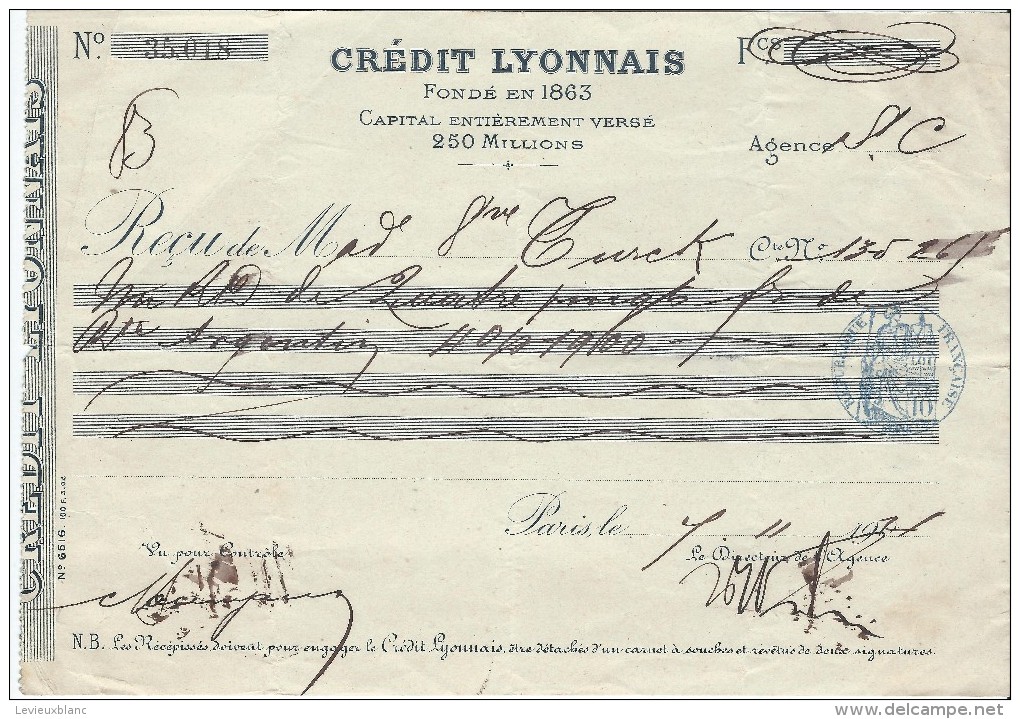 CRÉDIT LYONNAIS
Nº 35018
CRÉDIT LYONNAIS
Fcs
FONDÉ EN 1863
CAPITAL ENTIÈREMENT VERSÉ
250 MILLIONS
Agence S. C
B
Reçu de Mad Vve Turck Cte Nº 135 26
de Quatre vingts fr de
Rte Argentin 4 0/0 1900
RÉPUBLIQUE FRANÇAISE
10
Nº 6516.
Paris, le 7 11
Vu pour Contrôle
Le Directeur de l'Agence
N.B. Les Récépissés doivent pour engager le Crédit Lyonnais, être détachés d'un carnet à souches et revêtus de deux signatures.
Levieuxblanc
delcampe.net